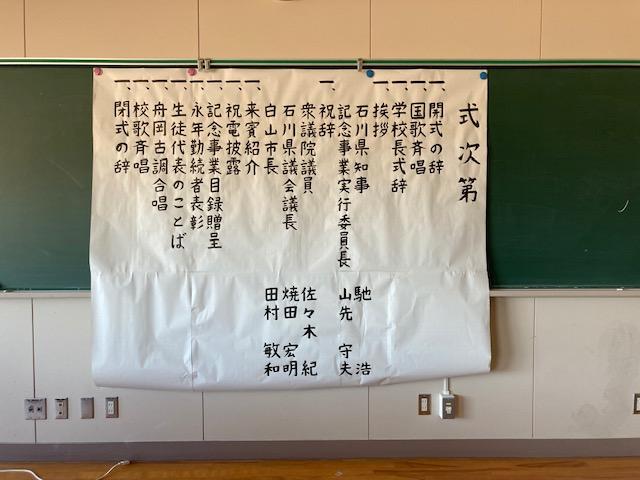 式次第
一、開式の辞
一、国歌斉唱
一、学校長式辞
一、挨拶
石川県知事 馳 浩
記念事業実行委員長 山先 守夫
一、祝辞
衆議院議員 佐々木 紀
石川県議会議長 焼田 宏明
白山市長 田村 敏和
一、来賓紹介
一、祝電披露
一、記念事業目録贈呈
一、永年勤続者表彰
一、生徒代表のことば
一、舟岡古調合唱
一、校歌斉唱
一、閉式の辞